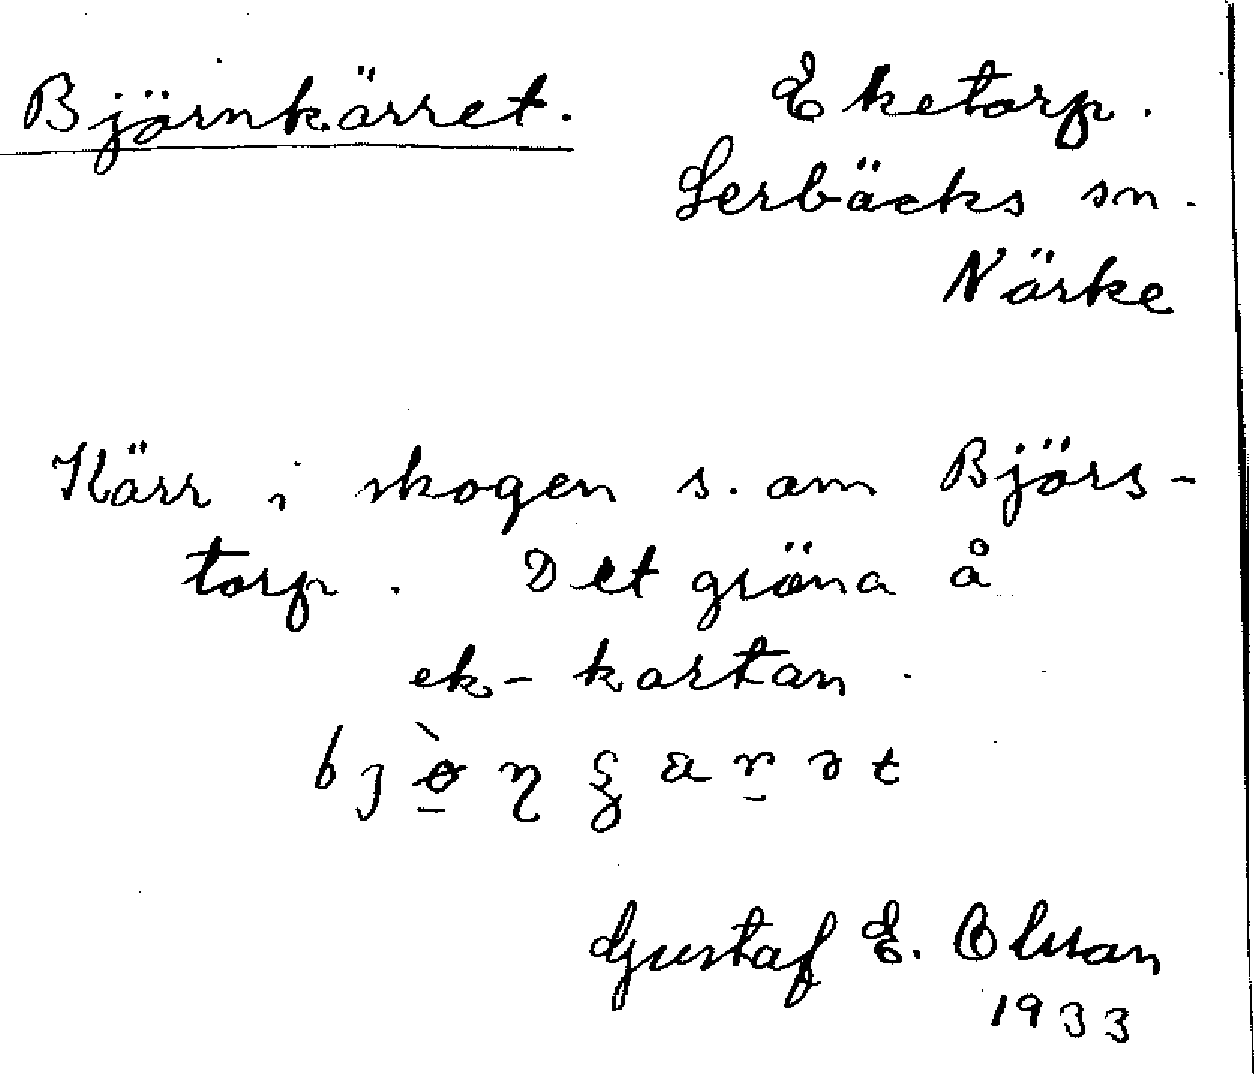 Björnkärret.
Eketorp.
Lerbäcks sn.
Närke
Kärr i skogen s. om Björs-
torp. Det gröna å
ek-kartan.
Gustaf E. Olsson
1933